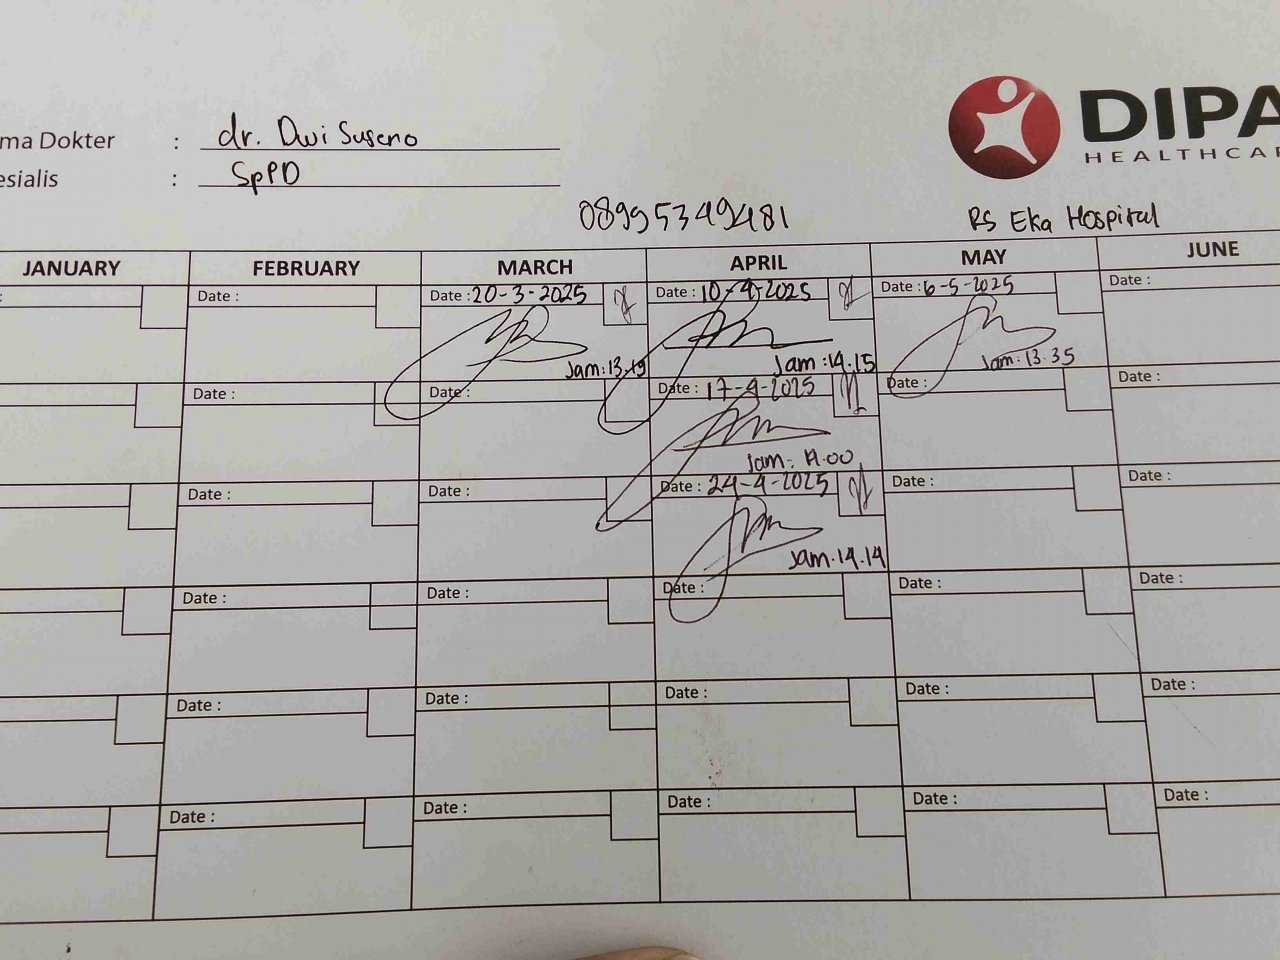 DIPA
HEALTHCAR
ma Dokter : dr. Dwi Suseno
esialis : SpPD
08995349481 RS Eka Hospital
JANUARY FEBRUARY MARCH APRIL MAY JUNE
: Date : Date : 20-3-2025 Date : 10-4-2025 Date : 6-5-2025 Date :
Jam : 13.19 Jam : 14.15 Jam : 13.35
Date : Date : Date : 17-4-2025 Date : Date :
Jam : 14.00
Date : Date : Date : 24-4-2025 Date : Date :
Jam . 14.14
Date : Date : Date : Date : Date :
Date : Date : Date : Date : Date :
Date : Date : Date : Date : Date :